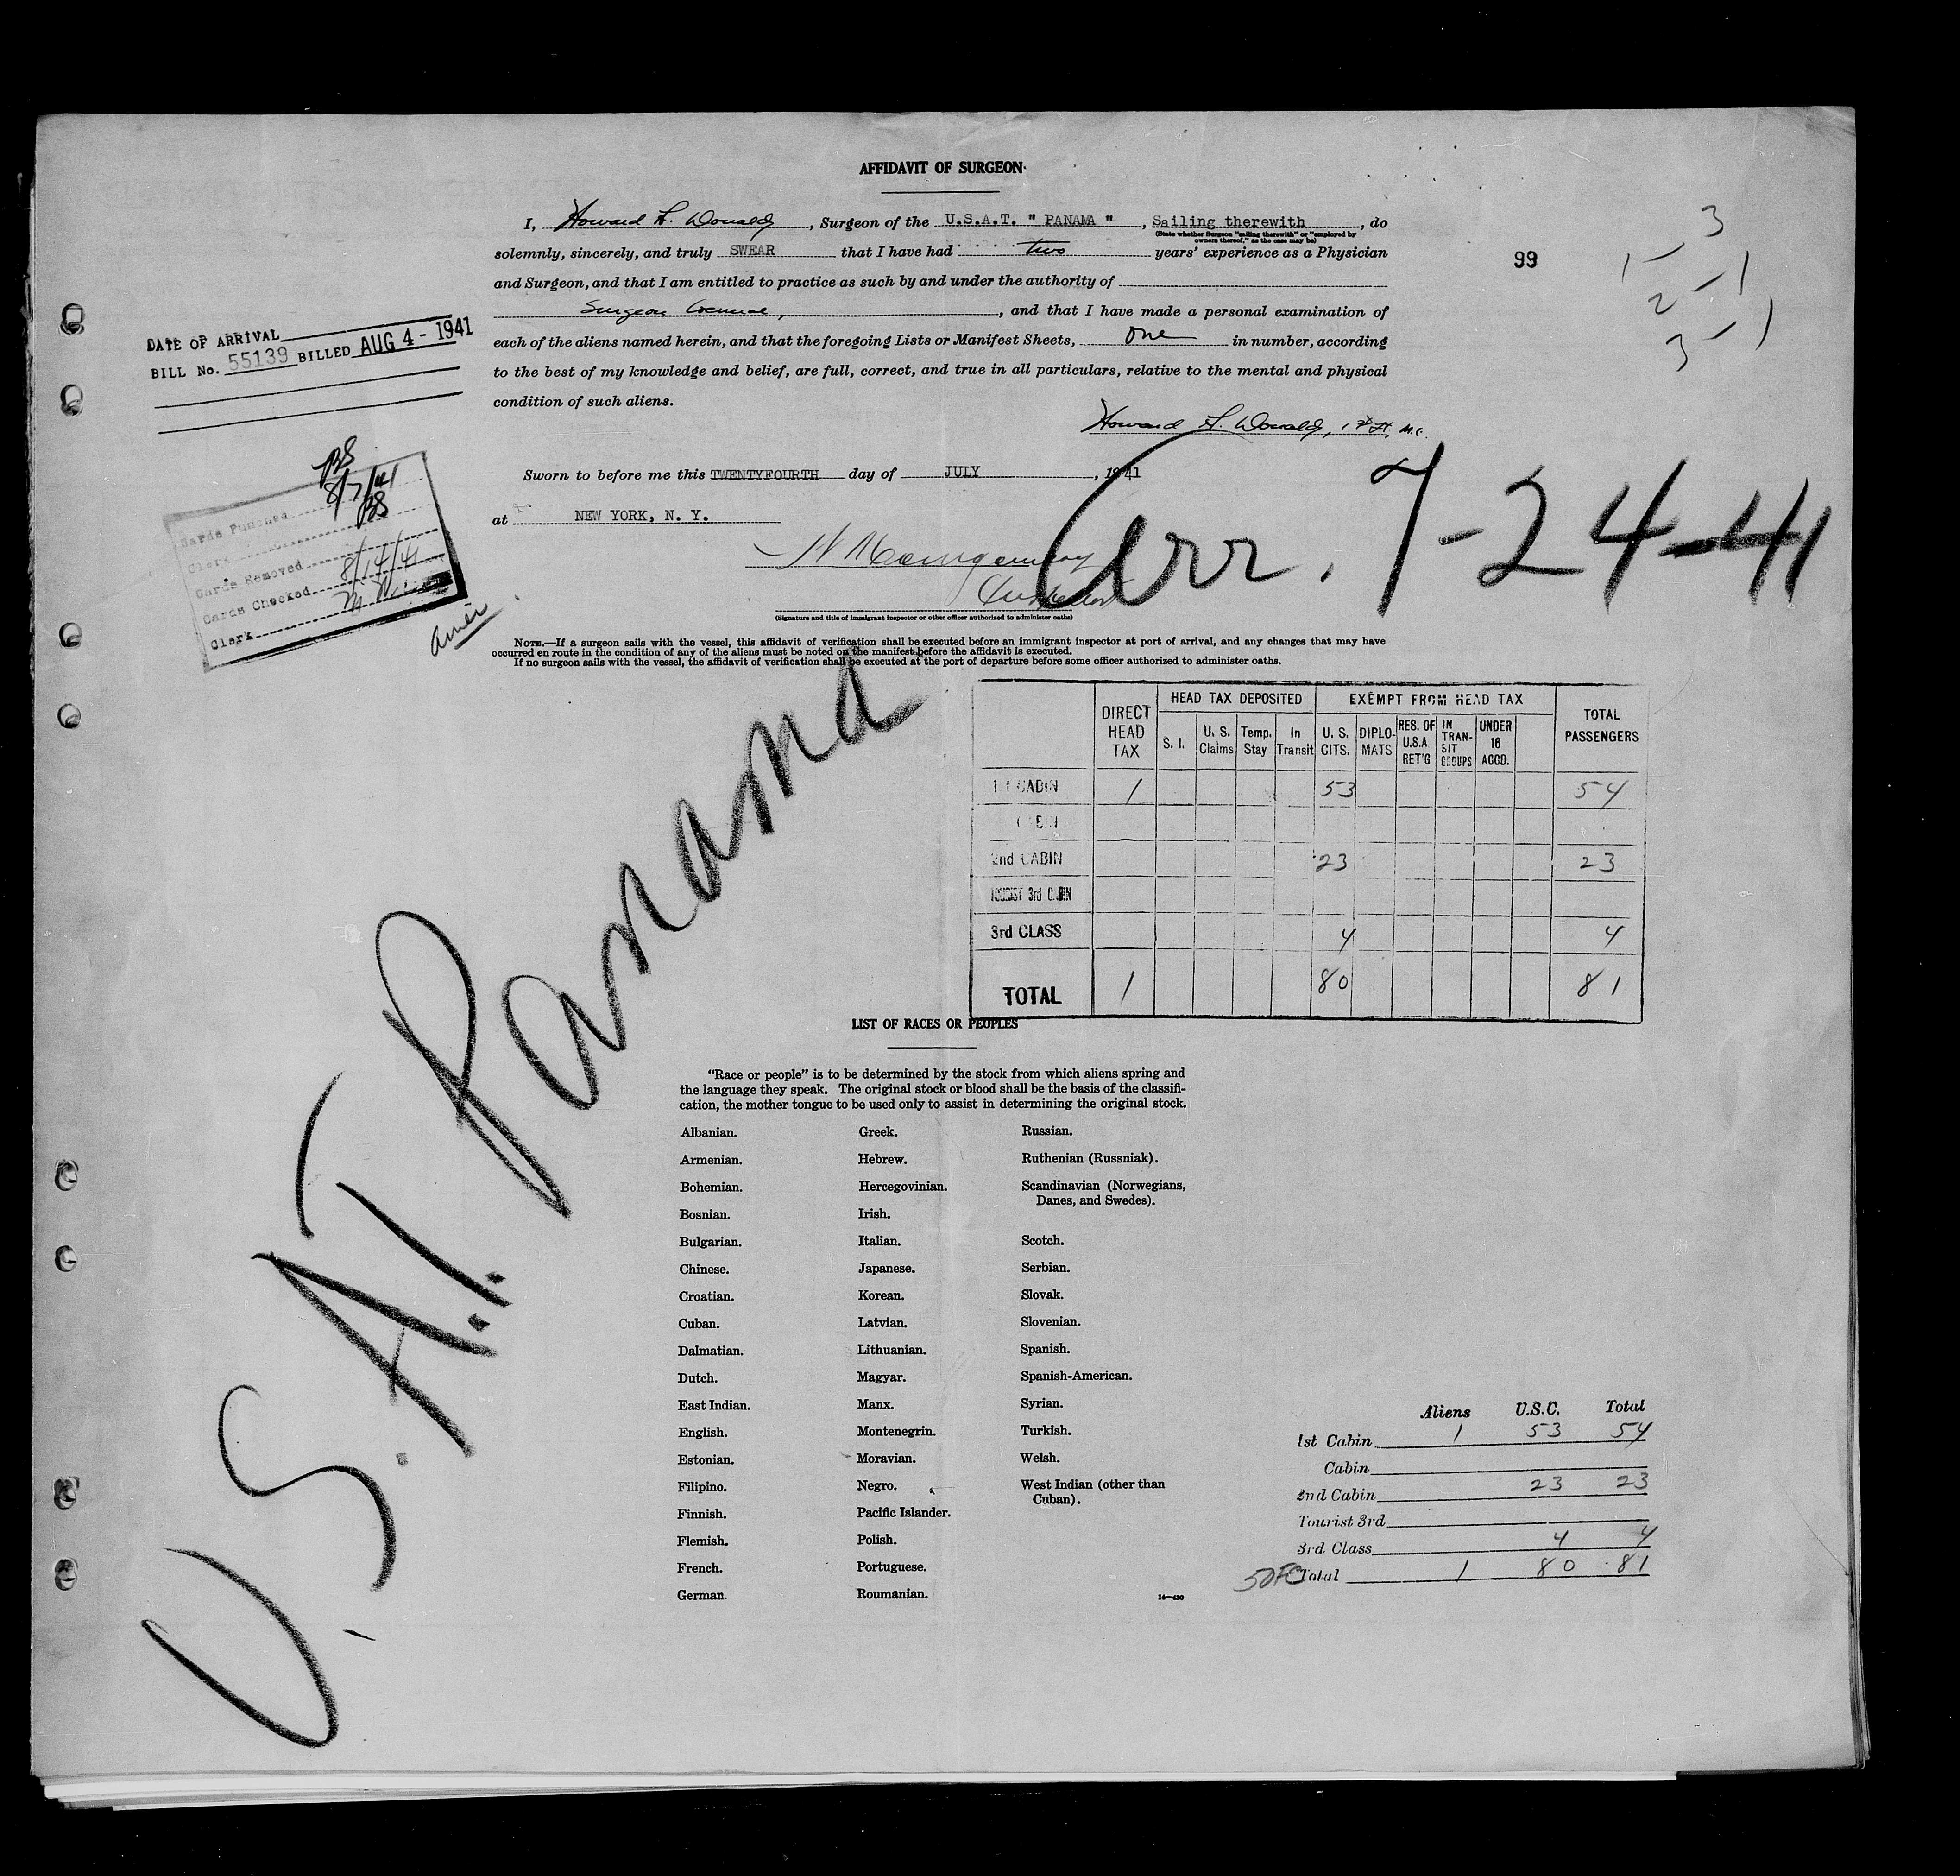 AFFIDAVIT OF SURGEON
I, Howard F. Donald, Surgeon of the U.S.A.T. " PANAMA ", Sailing therewith, do
(State whether Surgeon "sailing therewith" or "employed by
owners thereof," as the case may be)
solemnly, sincerely, and truly SWEAR that I have had two years' experience as a Physician
and Surgeon, and that I am entitled to practice as such by and under the authority of
Surgeon General, and that I have made a personal examination of
each of the aliens named herein, and that the foregoing Lists or Manifest Sheets, One in number, according
to the best of my knowledge and belief, are full, correct, and true in all particulars, relative to the mental and physical
condition of such aliens.
Howard F. Donald, 1st Lt, M.C.
Sworn to before me this TWENTYFOURTH day of JULY, 1941
at NEW YORK, N. Y.
(Signature and title of immigrant inspector or other officer authorized to administer oaths)
99
3
1 -
2 - 1
3 - 1
DATE OF ARRIVAL
BILL No. 55139 BILLED AUG 4 - 1941
Cards Punched
8/7/41
Clerk
Cards Removed
Cards Checked 8/14/41
Clerk
Arr. 7-24-41
NOTE.—If a surgeon sails with the vessel, this affidavit of verification shall be executed before an immigrant inspector at port of arrival, and any changes that may have
occurred en route in the condition of any of the aliens must be noted on the manifest before the affidavit is executed.
If no surgeon sails with the vessel, the affidavit of verification shall be executed at the port of departure before some officer authorized to administer oaths.
U.S.A.T. Panama
DIRECT HEAD TAX HEAD TAX DEPOSITED EXEMPT FROM HEAD TAX TOTAL PASSENGERS
S. I. U. S. Claims Temp. Stay In Transit U. S. CITS. DIPLO-MATS RES. OF U.S.A. RET'G IN TRAN-SIT GROUPS UNDER 16 ACCD.
1st CABIN 1 53 54
CABIN
2nd CABIN 23 23
TOURIST 3rd CABIN
3rd CLASS 4 4
TOTAL 1 80 81
LIST OF RACES OR PEOPLES
"Race or people" is to be determined by the stock from which aliens spring and
the language they speak. The original stock or blood shall be the basis of the classifi-
cation, the mother tongue to be used only to assist in determining the original stock.
Albanian.
Armenian.
Bohemian.
Bosnian.
Bulgarian.
Chinese.
Croatian.
Cuban.
Dalmatian.
Dutch.
East Indian.
English.
Estonian.
Filipino.
Finnish.
Flemish.
French.
German.
Greek.
Hebrew.
Hercegovinian.
Irish.
Italian.
Japanese.
Korean.
Latvian.
Lithuanian.
Magyar.
Manx.
Montenegrin.
Moravian.
Negro.
Pacific Islander.
Polish.
Portuguese.
Roumanian.
Russian.
Ruthenian (Russniak).
Scandinavian (Norwegians,
Danes, and Swedes).
Scotch.
Serbian.
Slovak.
Slovenian.
Spanish.
Spanish-American.
Syrian.
Turkish.
Welsh.
West Indian (other than
Cuban).
16—430
Aliens U.S.C. Total
1st Cabin 1 53 54
Cabin
2nd Cabin 23 23
Tourist 3rd
3rd Class 4 4
Total 1 80 81